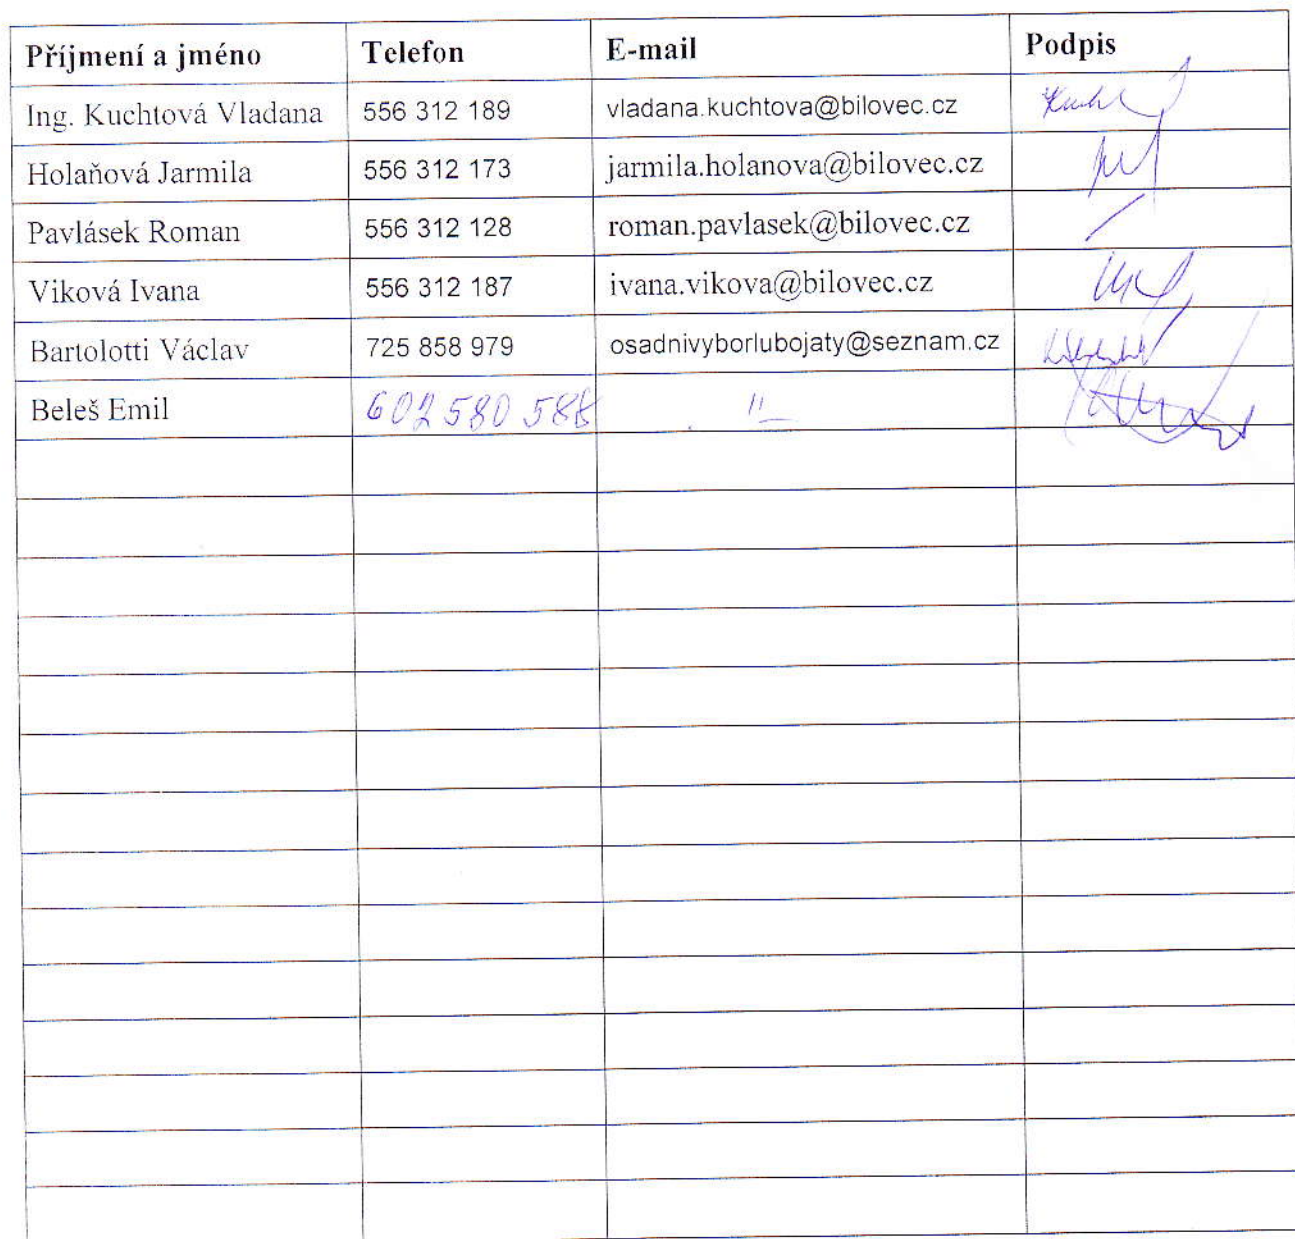 Příjmení a jméno Telefon E-mail Podpis
Ing. Kuchtová Vladana 556 312 189 vladana.kuchtova@bilovec.cz
Holaňová Jarmila 556 312 173 jarmila.holanova@bilovec.cz
Pavlásek Roman 556 312 128 roman.pavlasek@bilovec.cz
Viková Ivana 556 312 187 ivana.vikova@bilovec.cz
Bartolotti Václav 725 858 979 osadnivyborlubojaty@seznam.cz
Beleš Emil 602 580 588 –"–